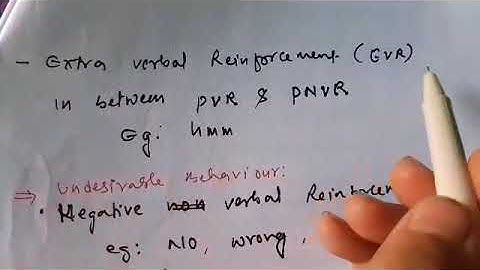 - Extra verbal Reinforcement (EVR)
in between PVR & PNVR
Eg: hmm
⇒ Undesirable Behaviour:
• Negative verbal Reinforcem
eg: NO, wrong,